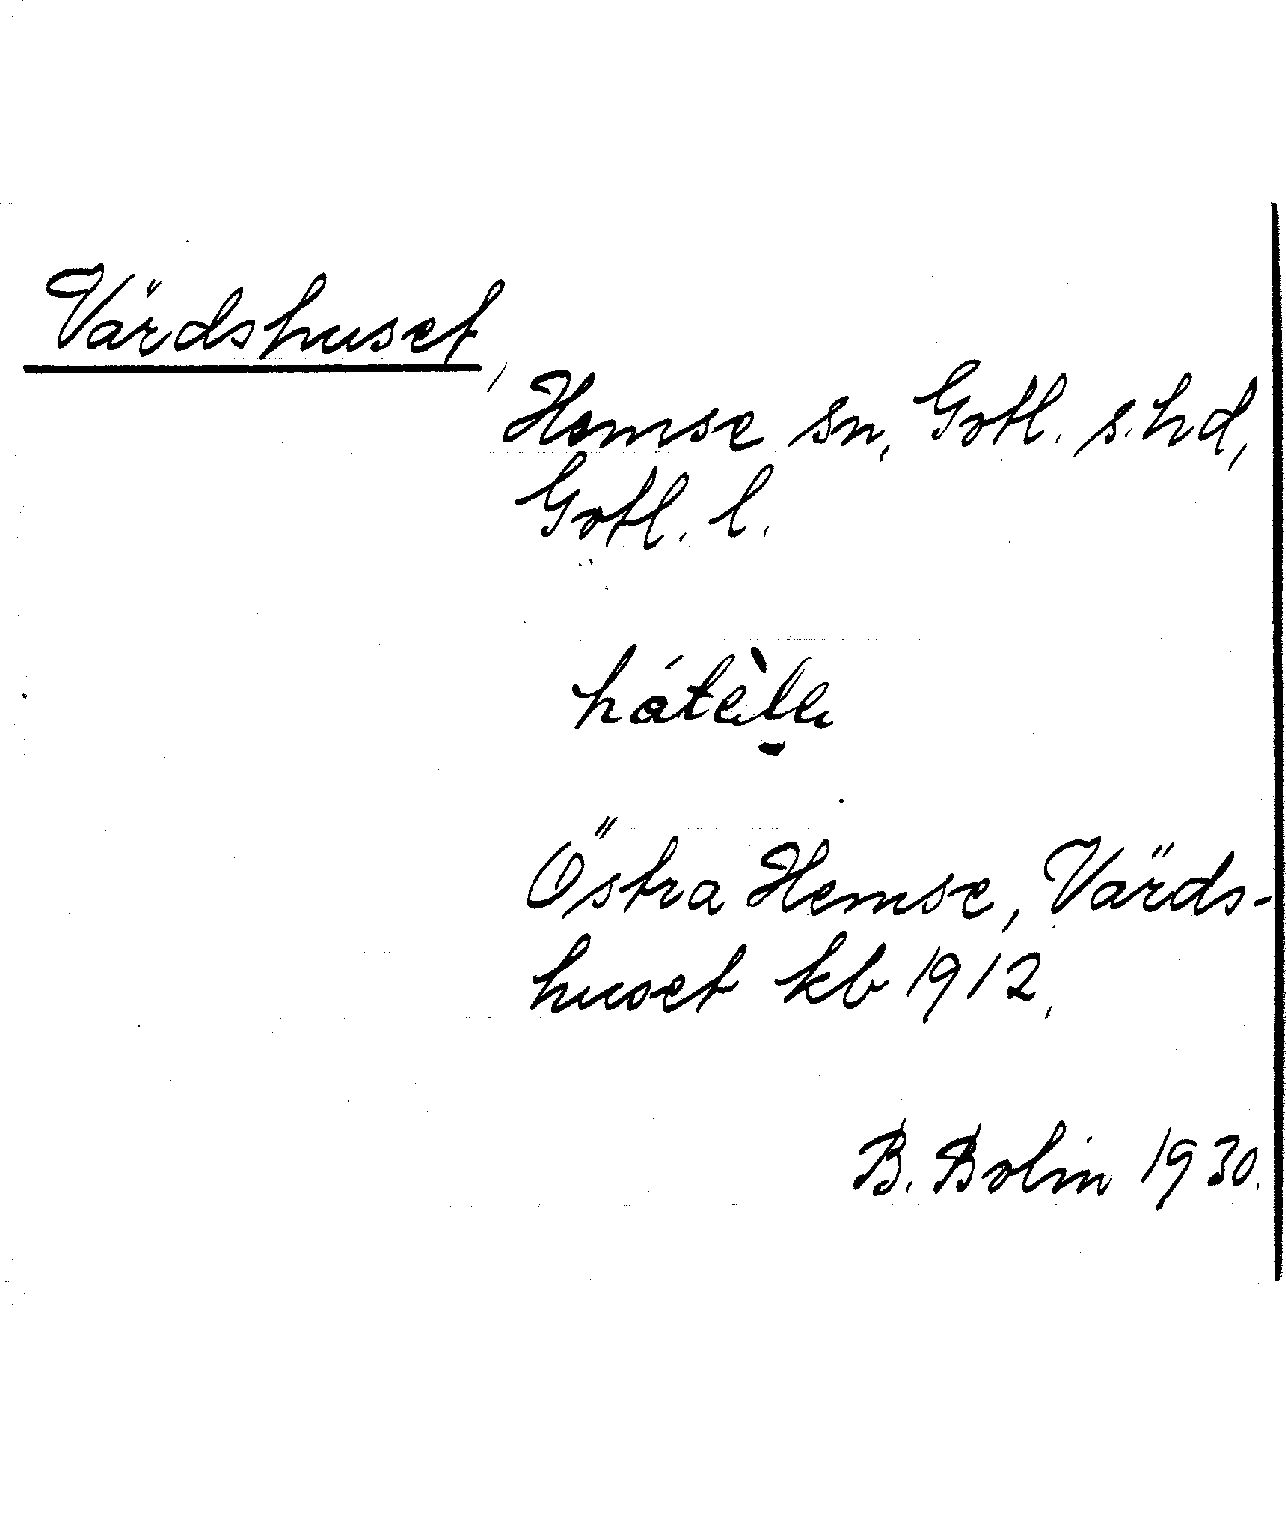 Värdshuset,
Hemse sn, Gotl. s. hd,
Gotl. l.
hátèle
Östra Hemse, Värds-
huset kb 1912.
B. Bolin 1930.